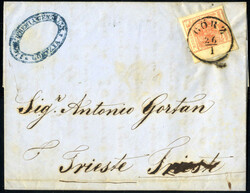 GÖRZ
24
1
Sigr. Antonio Gortan
Trieste Trieste